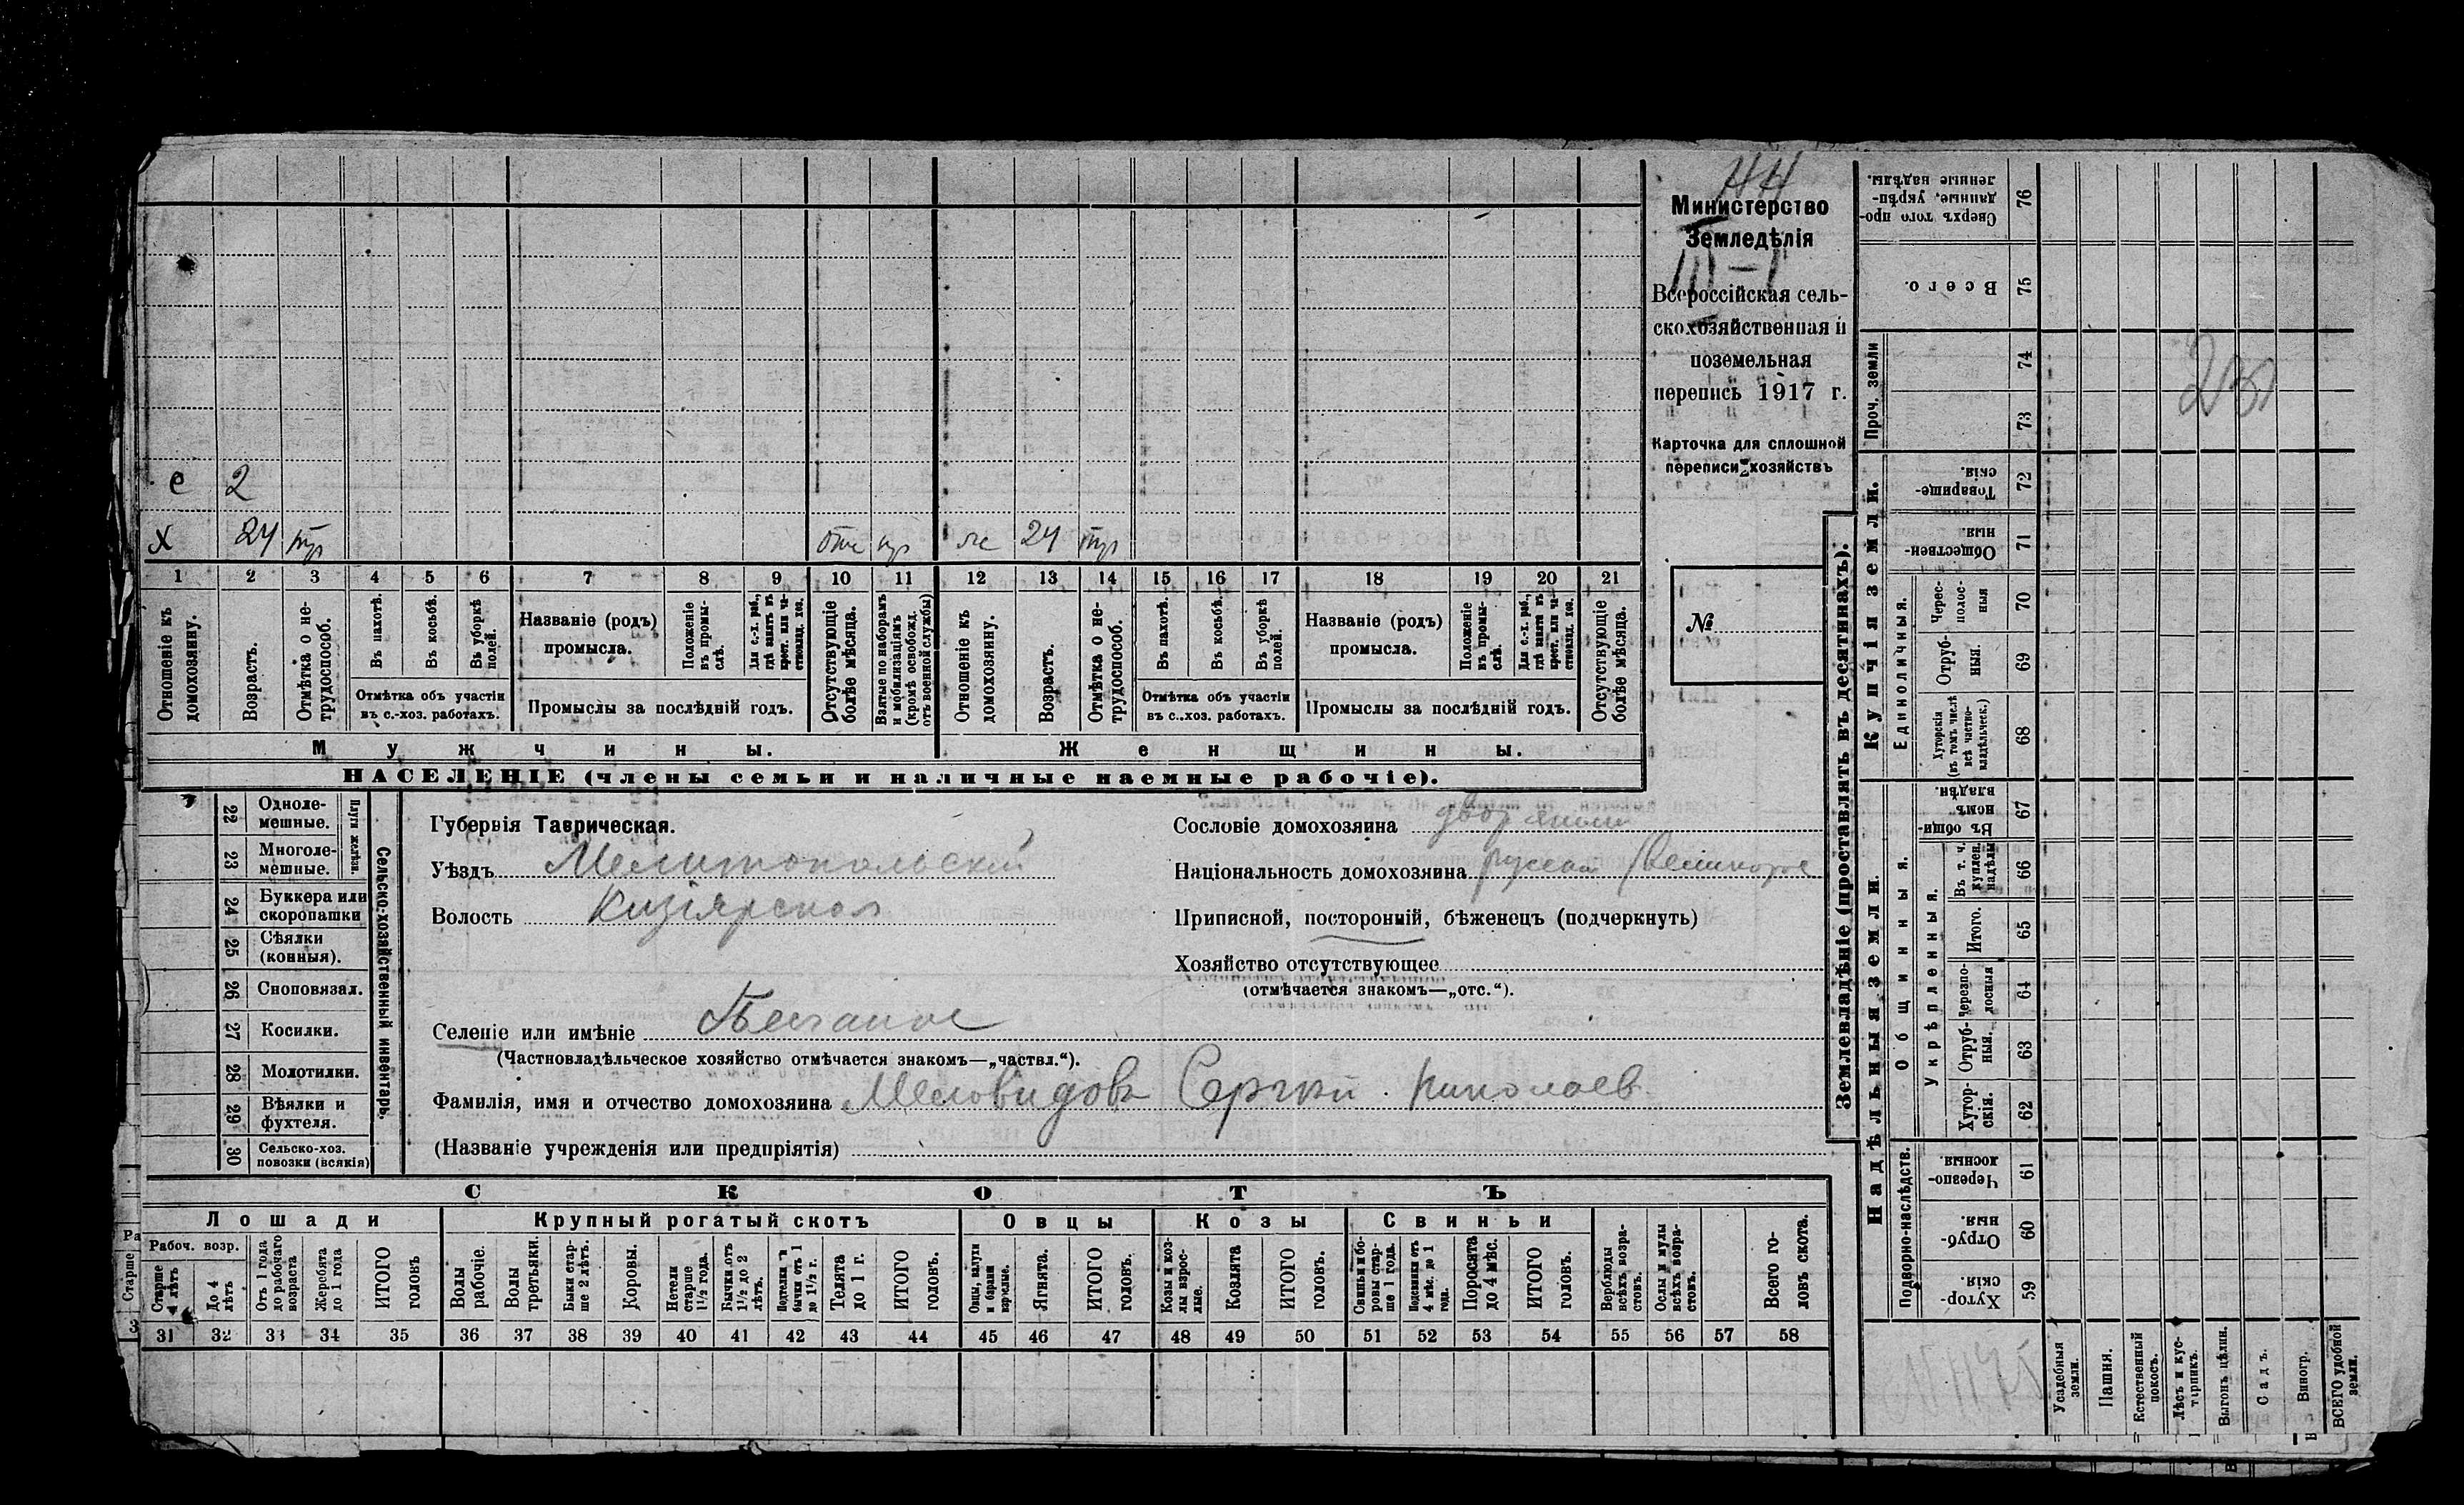 НН
Министерство
Земледѣлія
III–I
Всероссійская сель-
скохозяйственная и
поземельная
перепись 1917 г.
Карточка для сплошной
переписи хозяйствъ
№
е 2
х 24 тр отс 24 тр
1 2 3 4 5 6 7 8 9 10 11 12 13 14 15 16 17 18 19 20 21
Отношеніе къ домохозяину.
Возрастъ.
Отмѣтка о не-трудоспособ.
Въ пахотѣ.
Въ косьбѣ.
Въ уборкѣ полей.
Отмѣтка объ участіи
въ с.-хоз. работахъ.
Названіе (родъ)
промысла.
Положеніе въ промы-слѣ.
Для с.-х. раб., гдѣ занятъ въ крест. или ча-стновлад. хоз.
Промыслы за послѣдній годъ.
Отсутствующіе болѣе мѣсяца.
Взятые по наборамъ и мобилизаціямъ (кромѣ освобожд. отъ военной службы)
Отношеніе къ домохозяину.
Возрастъ.
Отмѣтка о не-трудоспособ.
Въ пахотѣ.
Въ косьбѣ.
Въ уборкѣ полей.
Отмѣтка объ участіи
въ с.-хоз. работахъ.
Названіе (родъ)
промысла.
Положеніе въ промы-слѣ.
Для с.-х. раб., гдѣ занята въ крест. или ча-стновлад. хоз.
Промыслы за послѣдній годъ.
Отсутствующіе болѣе мѣсяца.
Мужчины.
Женщины.
НАСЕЛЕНІЕ (члены семьи и наличные наемные рабочіе).
22 Одноле-мешные.
23 Многоле-мешные.
Плуги желѣзн.
24 Буккера или скоропашки
25 Сѣялки (конныя).
26 Сноповязал.
27 Косилки.
28 Молотилки.
29 Вѣялки и фухтеля.
30 Сельско-хоз. повозки (всякія)
Сельско-хозяйственный инвентарь.
Губернія Таврическая.
Уѣздъ Мелитопольскій
Волость Кизіярская
Селеніе или имѣніе Песчаное
(Частновладѣльческое хозяйство отмѣчается знакомъ—„частвл.“).
Фамилія, имя и отчество домохозяина Меловидовъ Сергѣй Николаев
(Названіе учрежденія или предпріятія)
Сословіе домохозяина дворянин
Національность домохозяина русскій (великорос
Приписной, посторонній, бѣженецъ (подчеркнуть)
Хозяйство отсутствующее
(отмѣчается знакомъ—„отс.“).
СКОТЪ
Лошади
Крупный рогатый скотъ
Овцы
Козы
Свиньи
Рабоч. возр.
Старше 4 лѣтъ
До 4 лѣтъ
Отъ 1 года до рабочаго возраста
Жеребята до 1 года
ИТОГО головъ
Волы рабочіе.
Волы третьяки.
Быки стар-ше 2 лѣтъ.
Коровы.
Нетели старше 1½ года.
Бычки отъ 1½ до 2 лѣтъ.
Подтелки и бычки отъ 1 до 1½ г.
Телята до 1 г.
ИТОГО головъ.
Овцы, валухи и бараны взрослые.
Ягнята.
ИТОГО головъ.
Козы и коз-лы взрос-лые.
Козлята
ИТОГО головъ.
Свиньи и бо-ровы стар-ше 1 года.
Подсвинки отъ 4 мѣс. до 1 года.
Поросята до 4 мѣс.
ИТОГО головъ.
Верблюды всѣхъ возра-стовъ.
Ослы и мулы всѣхъ возра-стовъ.
Всего го-ловъ скота.
31 32 33 34 35 36 37 38 39 40 41 42 43 44 45 46 47 48 49 50 51 52 53 54 55 56 57 58
Землевладѣніе (проставлять въ десятинахъ).
Сверхъ того про-данные, укрѣп-ленные надѣлы. 76
Всего. 75
Проч. земли 74
73
Купчія земли.
Товарище-скія. 72
Обществен-ныя. 71
Единоличныя.
Черес-полос-ныя 70
Отруб-ныя. 69
Хуторскія (въ томъ числѣ всѣ частно-владѣльческ.) 68
Надѣльныя земли.
Общинныя.
Въ общин-номъ владѣн. 67
Укрѣпленныя.
Въ т. ч. куплен. надѣлы 66
Итого. 65
Черезпо-лосныя 64
Отруб-ныя. 63
Хутор-скія. 62
Подворно-наслѣдств.
Черезпо-лосныя. 61
Отруб-ныя. 60
Хутор-скія 59
Усадебныя земли.
Пашня.
Естественный покосъ.
Лѣсъ и кус-тарникъ.
Выгонъ цѣлин.
Садъ.
Виногр.
ВСЕГО удобной земли.